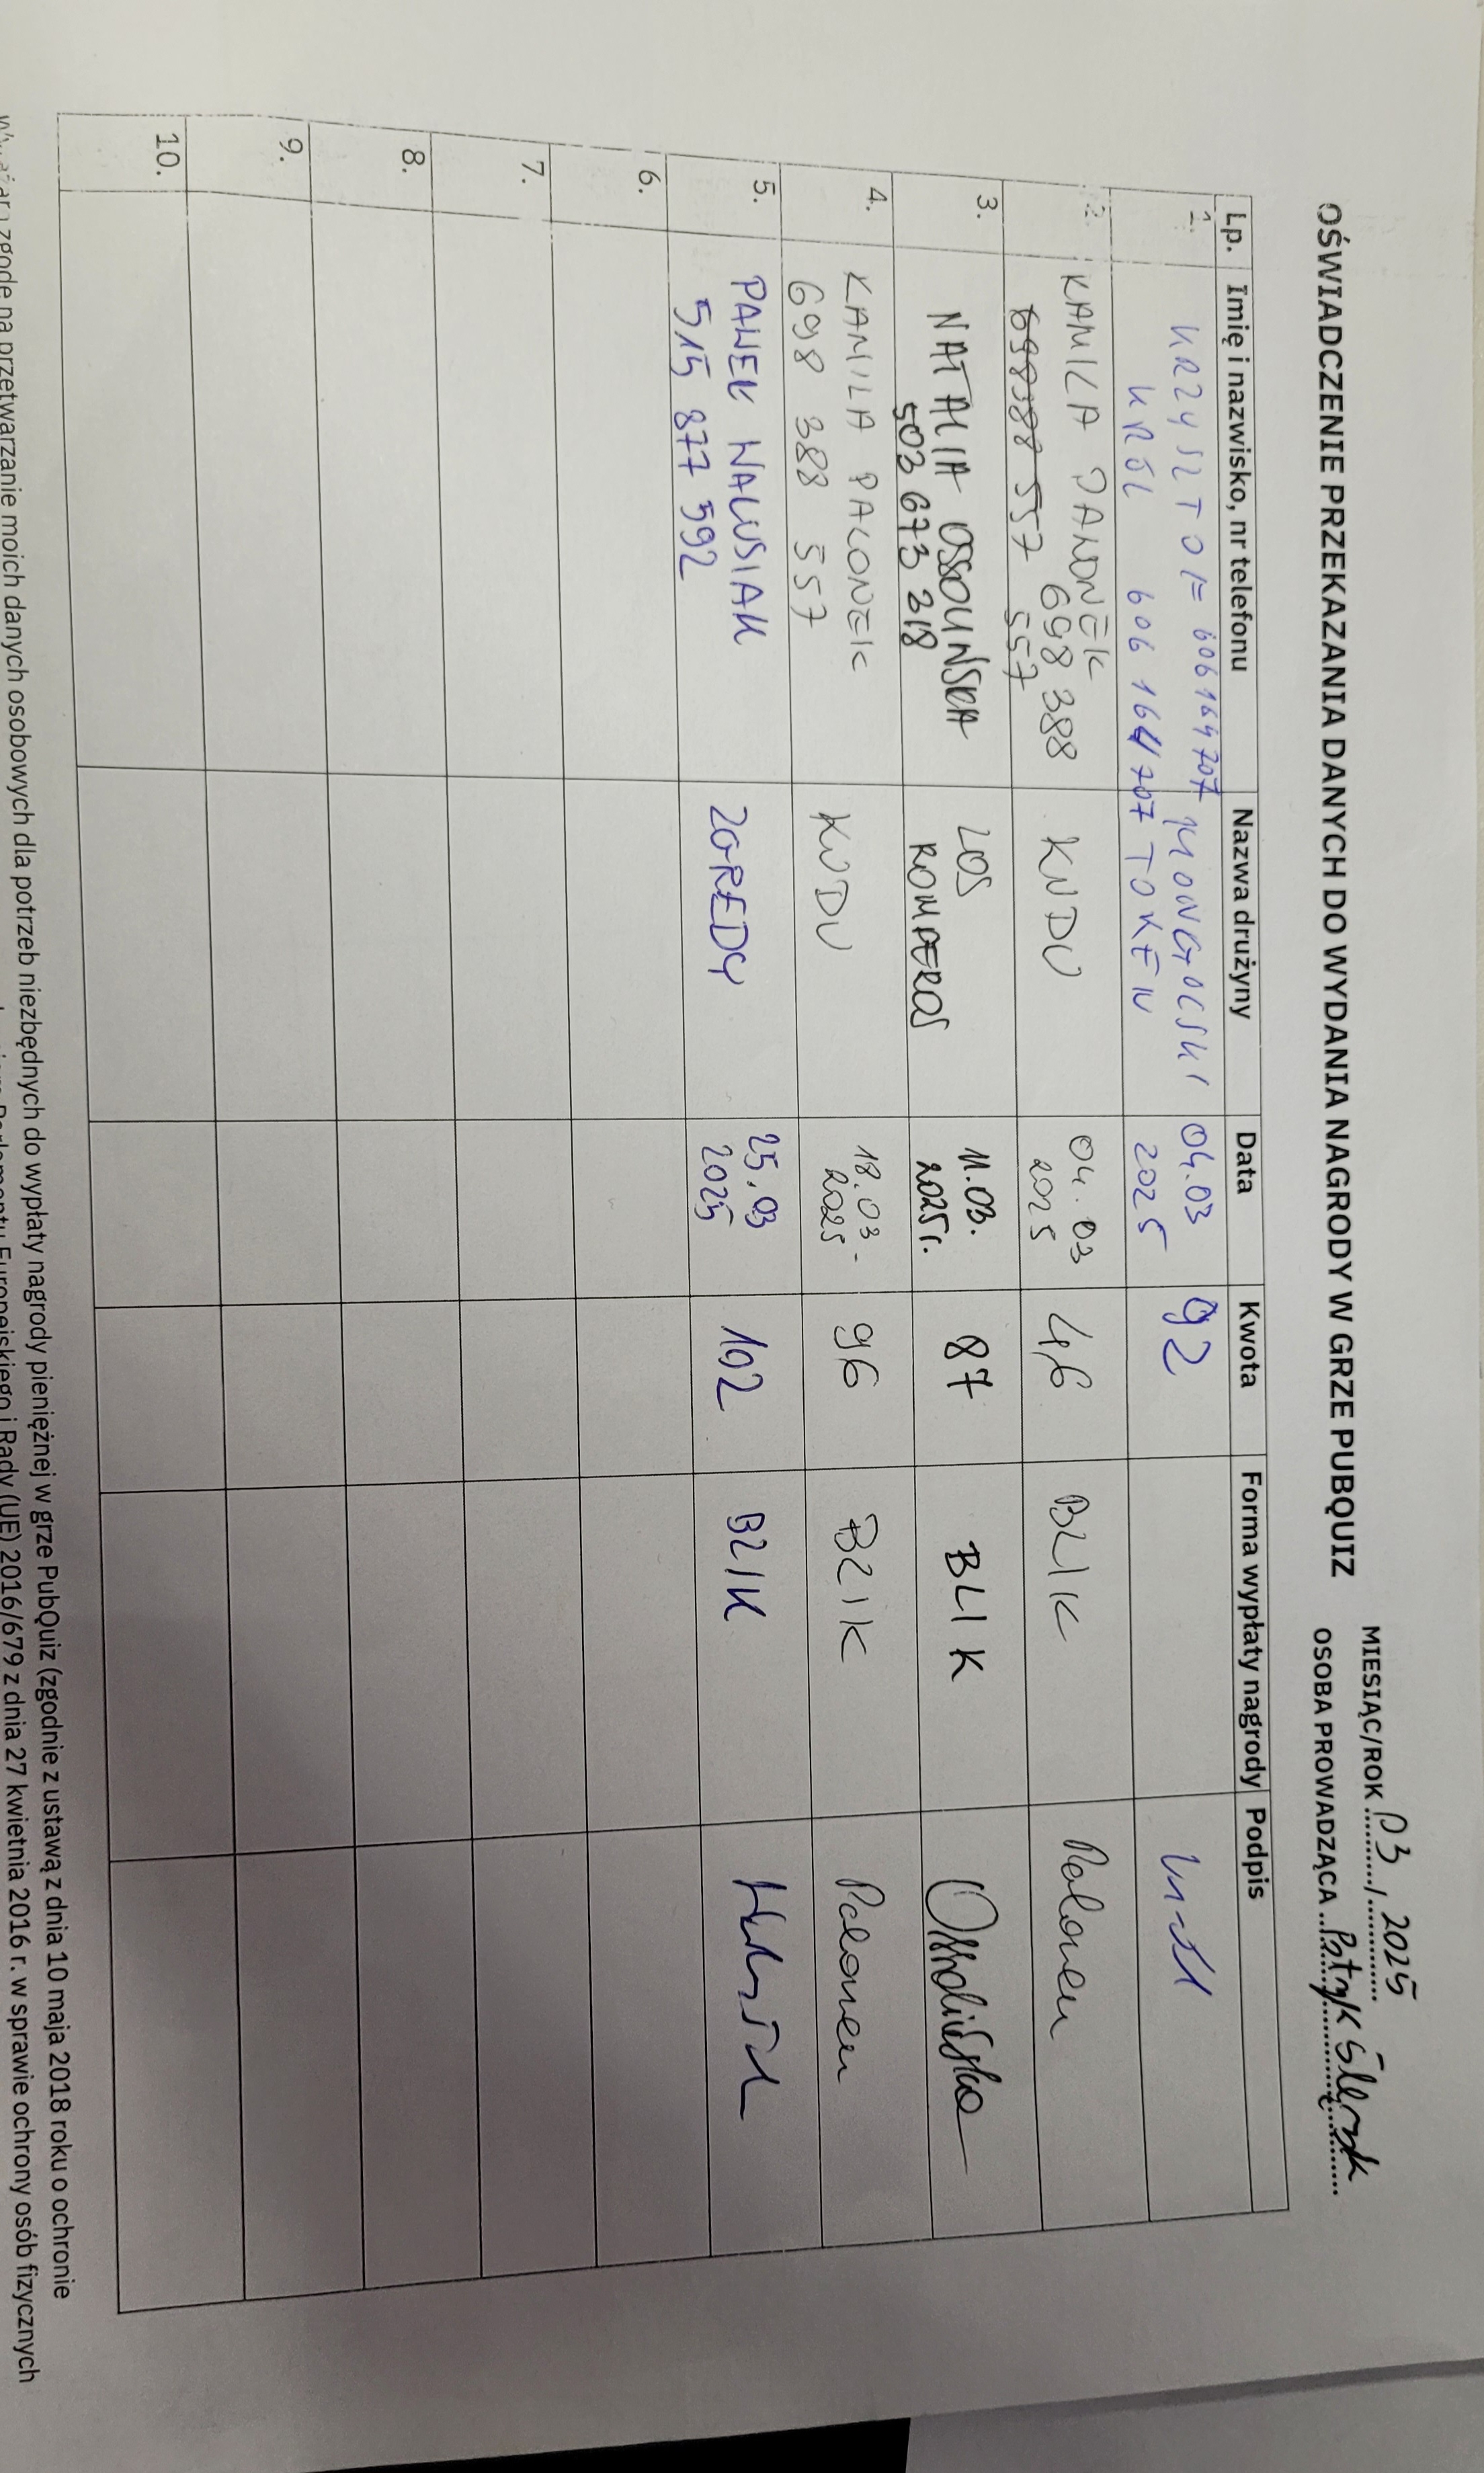 MIESIĄC/ROK 03 / 2025
OŚWIADCZENIE PRZEKAZANIA DANYCH DO WYDANIA NAGRODY W GRZE PUBQUIZ
OSOBA PROWADZĄCA Patryk
Lp. Imię i nazwisko, nr telefonu Nazwa drużyny Data Kwota Forma wypłaty nagrody Podpis
1. KRZYSZTOF 606164707 MONGOLSKI 04.03 92
KRÓL 606 164 707 TOKEN 2025
2. KAMILA KUDU 04.03 46 BLIK
698388 557 698 388 2025
557
3. NATALIA OSSOLIŃSKA LOS 11.03. 87 BLIK Ossolińska
503 673 218 ROMPEROS 2025r.
4. KAMILA PALONEK KUDU 18.03 - 96 BLIK Palonek
698 388 557 2025
5. PAWEŁ WALUSIAK ZGREDY 25.03 102 BLIK
515 877 592 2025
6.
7.
8.
9.
10.
zgodę na przetwarzanie moich danych osobowych dla potrzeb niezbędnych do wypłaty nagrody pieniężnej w grze PubQuiz (zgodnie z ustawą z dnia 10 maja 2018 roku o ochronie
Parlamentu Europejskiego i Rady (UE) 2016/679 z dnia 27 kwietnia 2016 r. w sprawie ochrony osób fizycznych